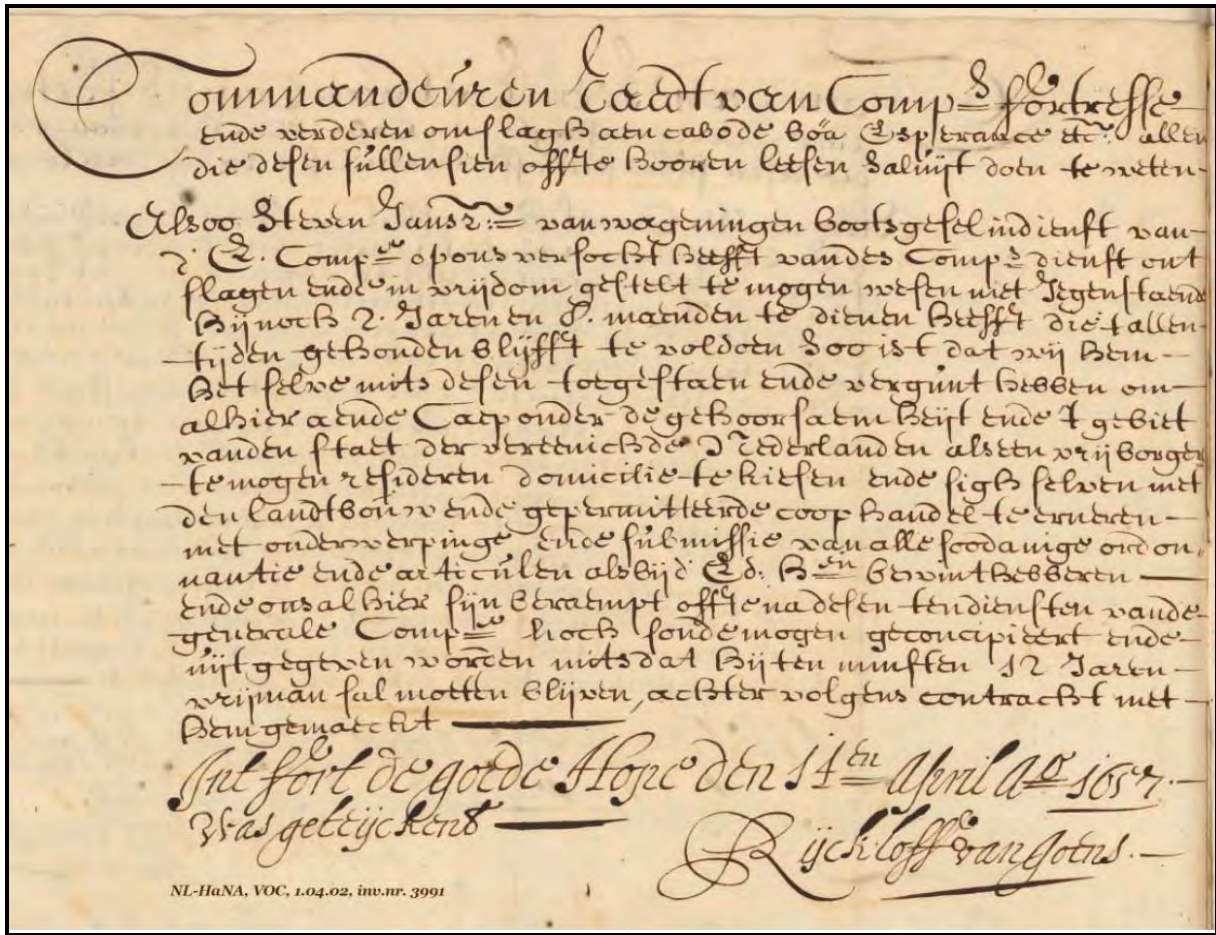 Commandeur en Raedt van Comp:s fortresse
ende verderen omslagh aen cabo de boa Esperance etc:a allen
die desen sullen sien offte hooren leesen Saluijt doen te weten
Alsoo Steven Jansz: van wageningen bootsgesel in dienst van
d' E. Comp:ie op ons versocht heefft van des Comp:s dienst ont
slagen ende in vrijdom gestelt te mogen wesen niet Jegenstaende
hij noch 2. Jaren en 8. maenden te dienen heefft die t allen
tijden gehouden blijfft te voldoen Soo ist dat wij hem
het selve mits desen toegestaen ende vergunt hebben om
alhier aende Caep onder de gehoorsaemheijt ende t gebiet
vanden staet der vereenichde Nederlanden als een vrijborger
te mogen resideren domicilie te kiesen ende sigh selven met
den landtbouw ende gepermitteerde coophandel te erneren
met onderwerpinge ende submissie van alle soodanige ordon,
nantie ende articulen als bijd' Ed: H:en bewinthebberen
ende ons alhier sijn beraempt offte na desen ten diensten vande
generale Comp:ie noch souden mogen geconcipieert ende
uijtgegeven worden mits dat hij ten minsten 12 Jaren
vrijman sal moeten blijven, achtervolgens contracht met
hem gemaeckt
Int fort de goede Hope den 14:en April A:o 1657.
Was geteijckent
Rijckloff van Goens.
NL-HaNA, VOC, 1.04.02, inv.nr. 3991